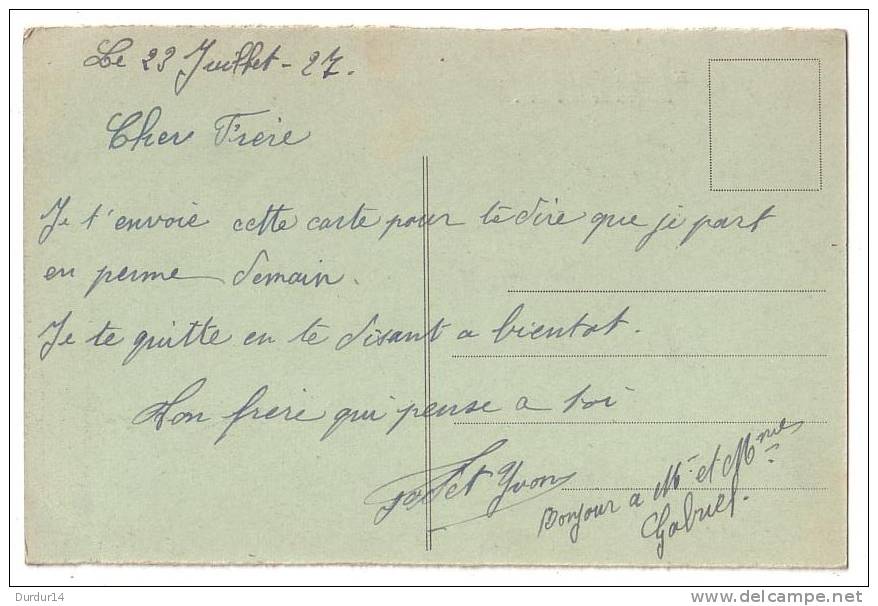 Le 23 Juillet - 27.
Cher Frère
Je t'envoie cette carte pour te dire que je part
en perme demain.
Je te quitte en te disant a bientot.
Ton frère qui pense a toi
Yvon
Bonjour a Mr et Mme
Gabriel.
Durdur14
www.delcampe.net